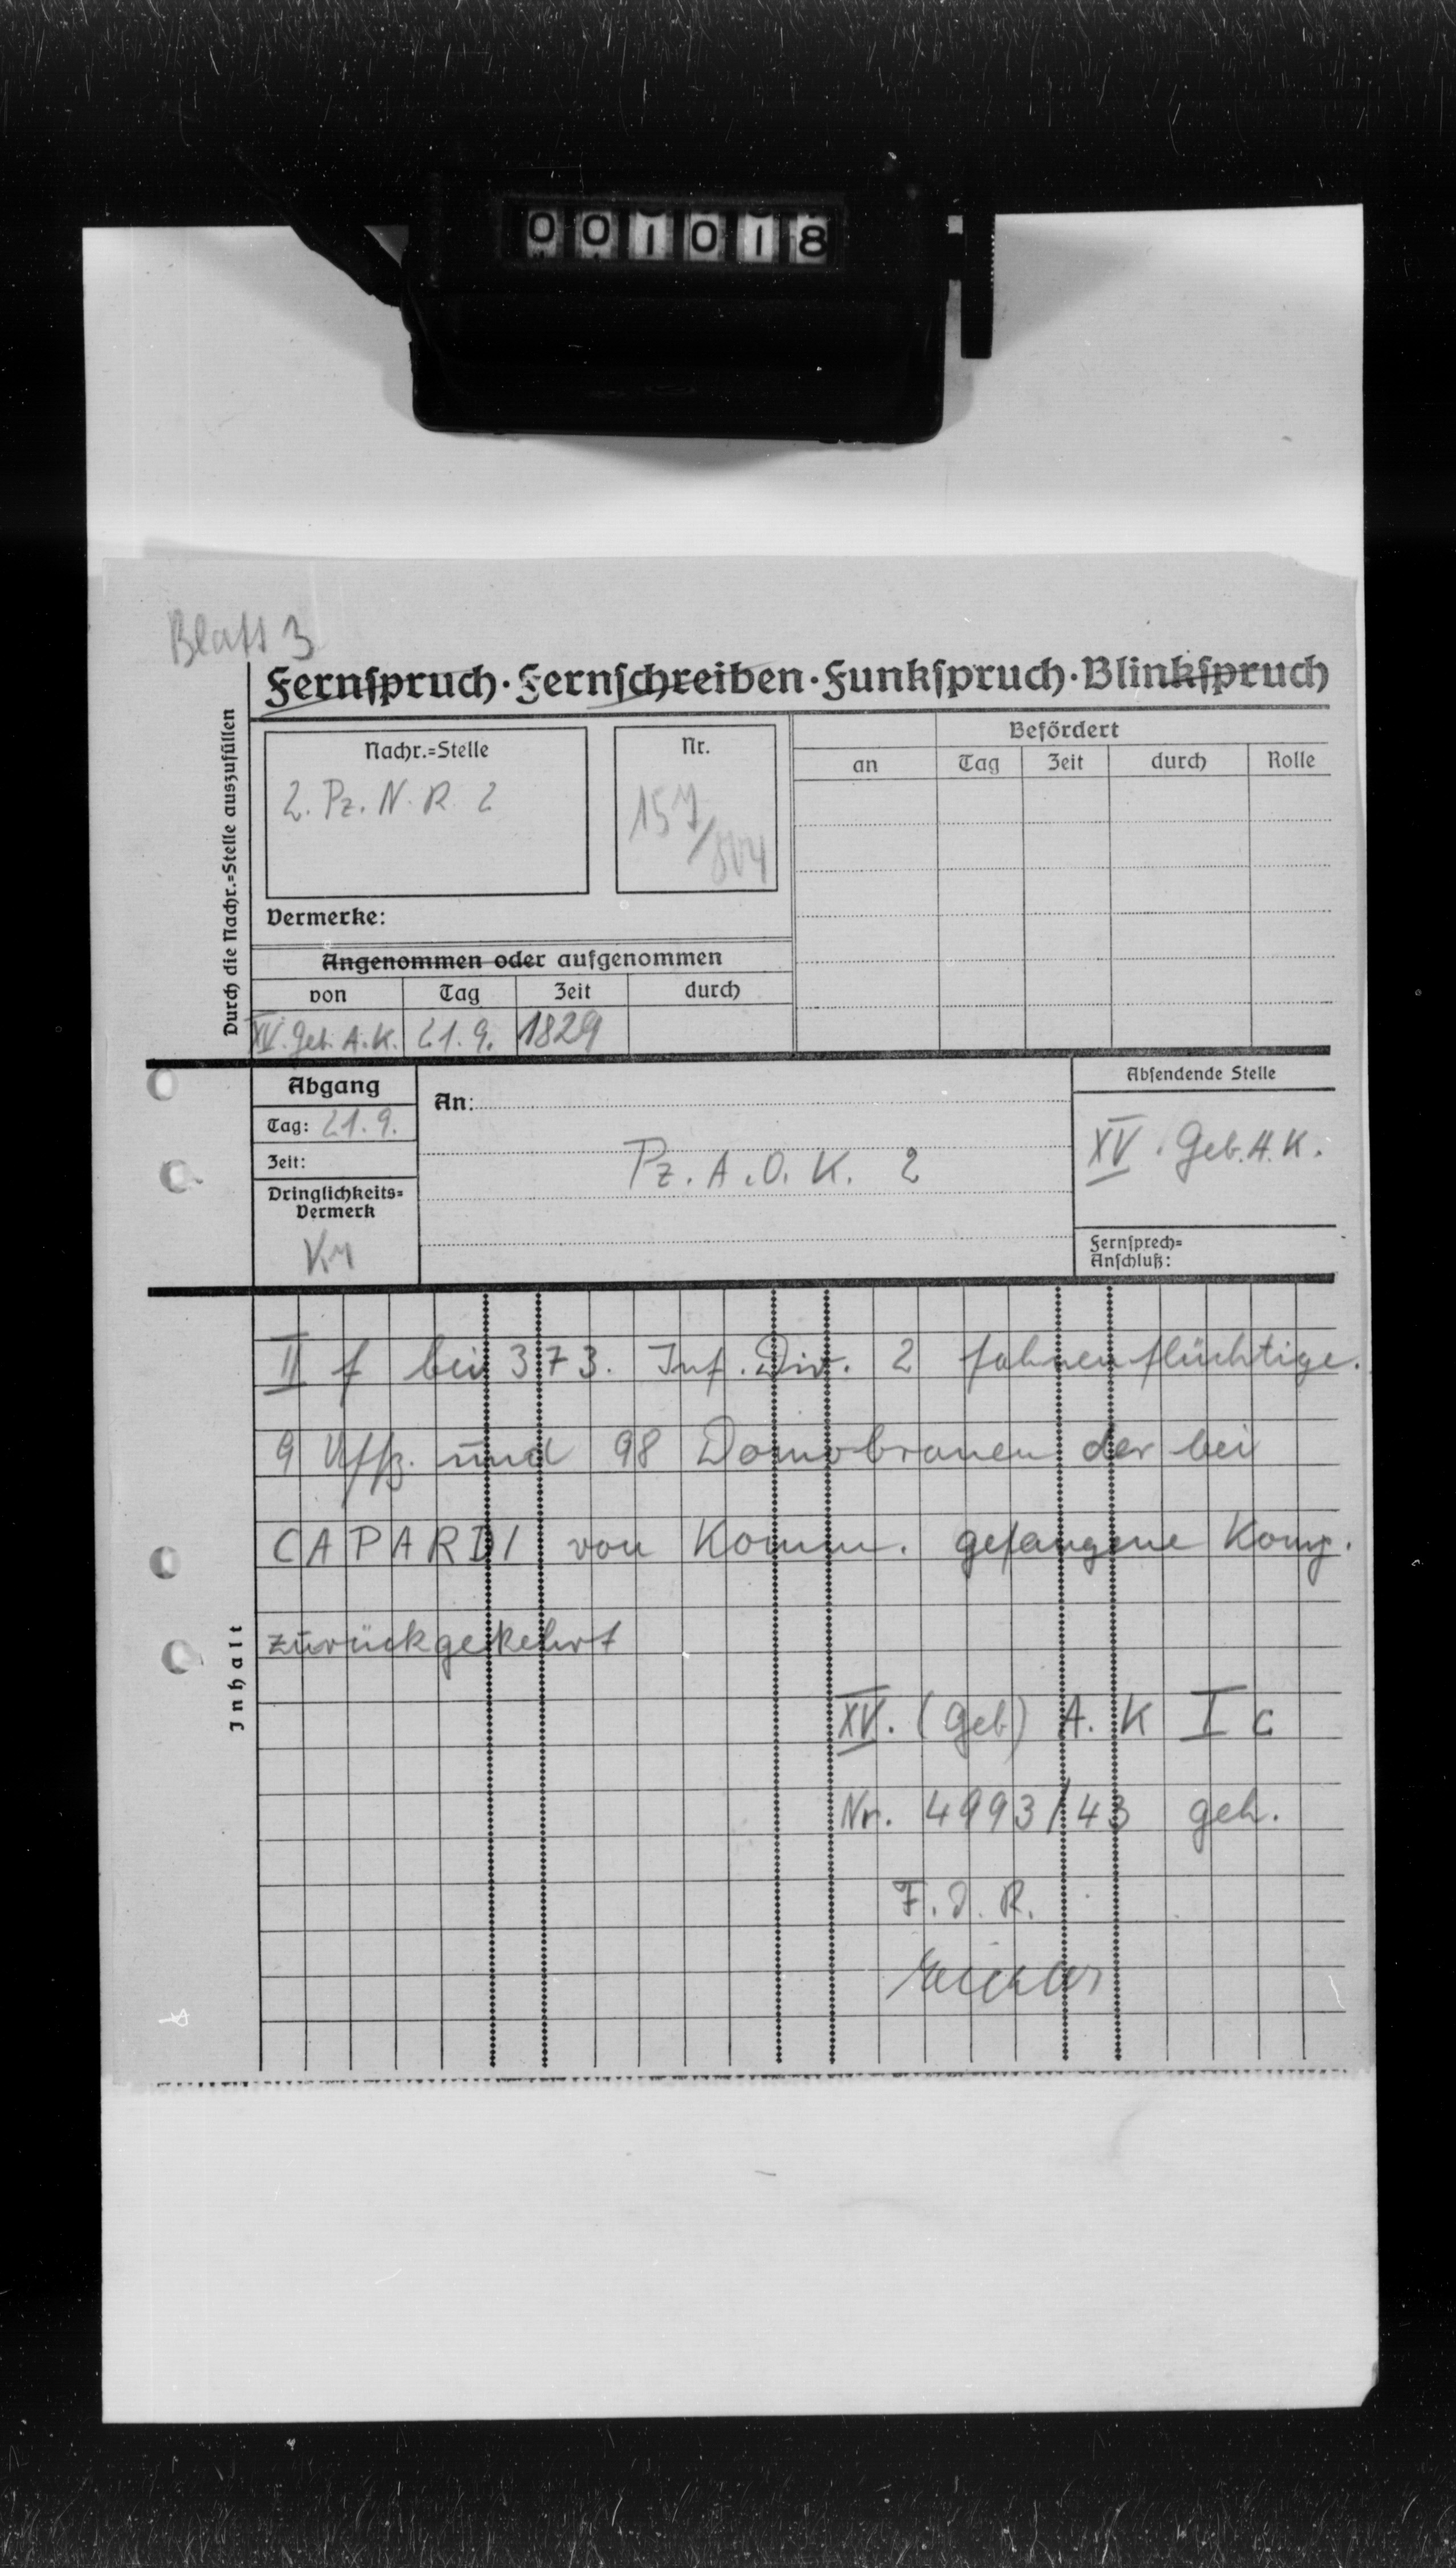 001018
Blatt 3
Fernspruch · Fernschreiben · Funkspruch · Blinkspruch
Durch die Nachr.=Stelle auszufüllen
Nachr.=Stelle
2. Pz. N. R. 2
Nr.
Befördert
an Tag Zeit durch Rolle
Vermerke:
Angenommen oder aufgenommen
von Tag Zeit durch
XV. Geb. A.K. 21. 9. 1829
Abgang
Tag: 21. 9.
Zeit:
Dringlichkeits=
Vermerk
Kr
An:
Pz. A. O. K. 2
Absendende Stelle
XV. Geb. A. K.
Fernsprech=
Anschluß:
Inhalt
II f bei 373. Inf. Div. 2 fahnenflüchtige.
9 Uffz. und 98 Domobranen der bei
CAPARDI von Komm. gefangene Komp.
zurückgekehrt
XV. (Geb) A. K I c
Nr. 4993/43 geh.
F. d. R.